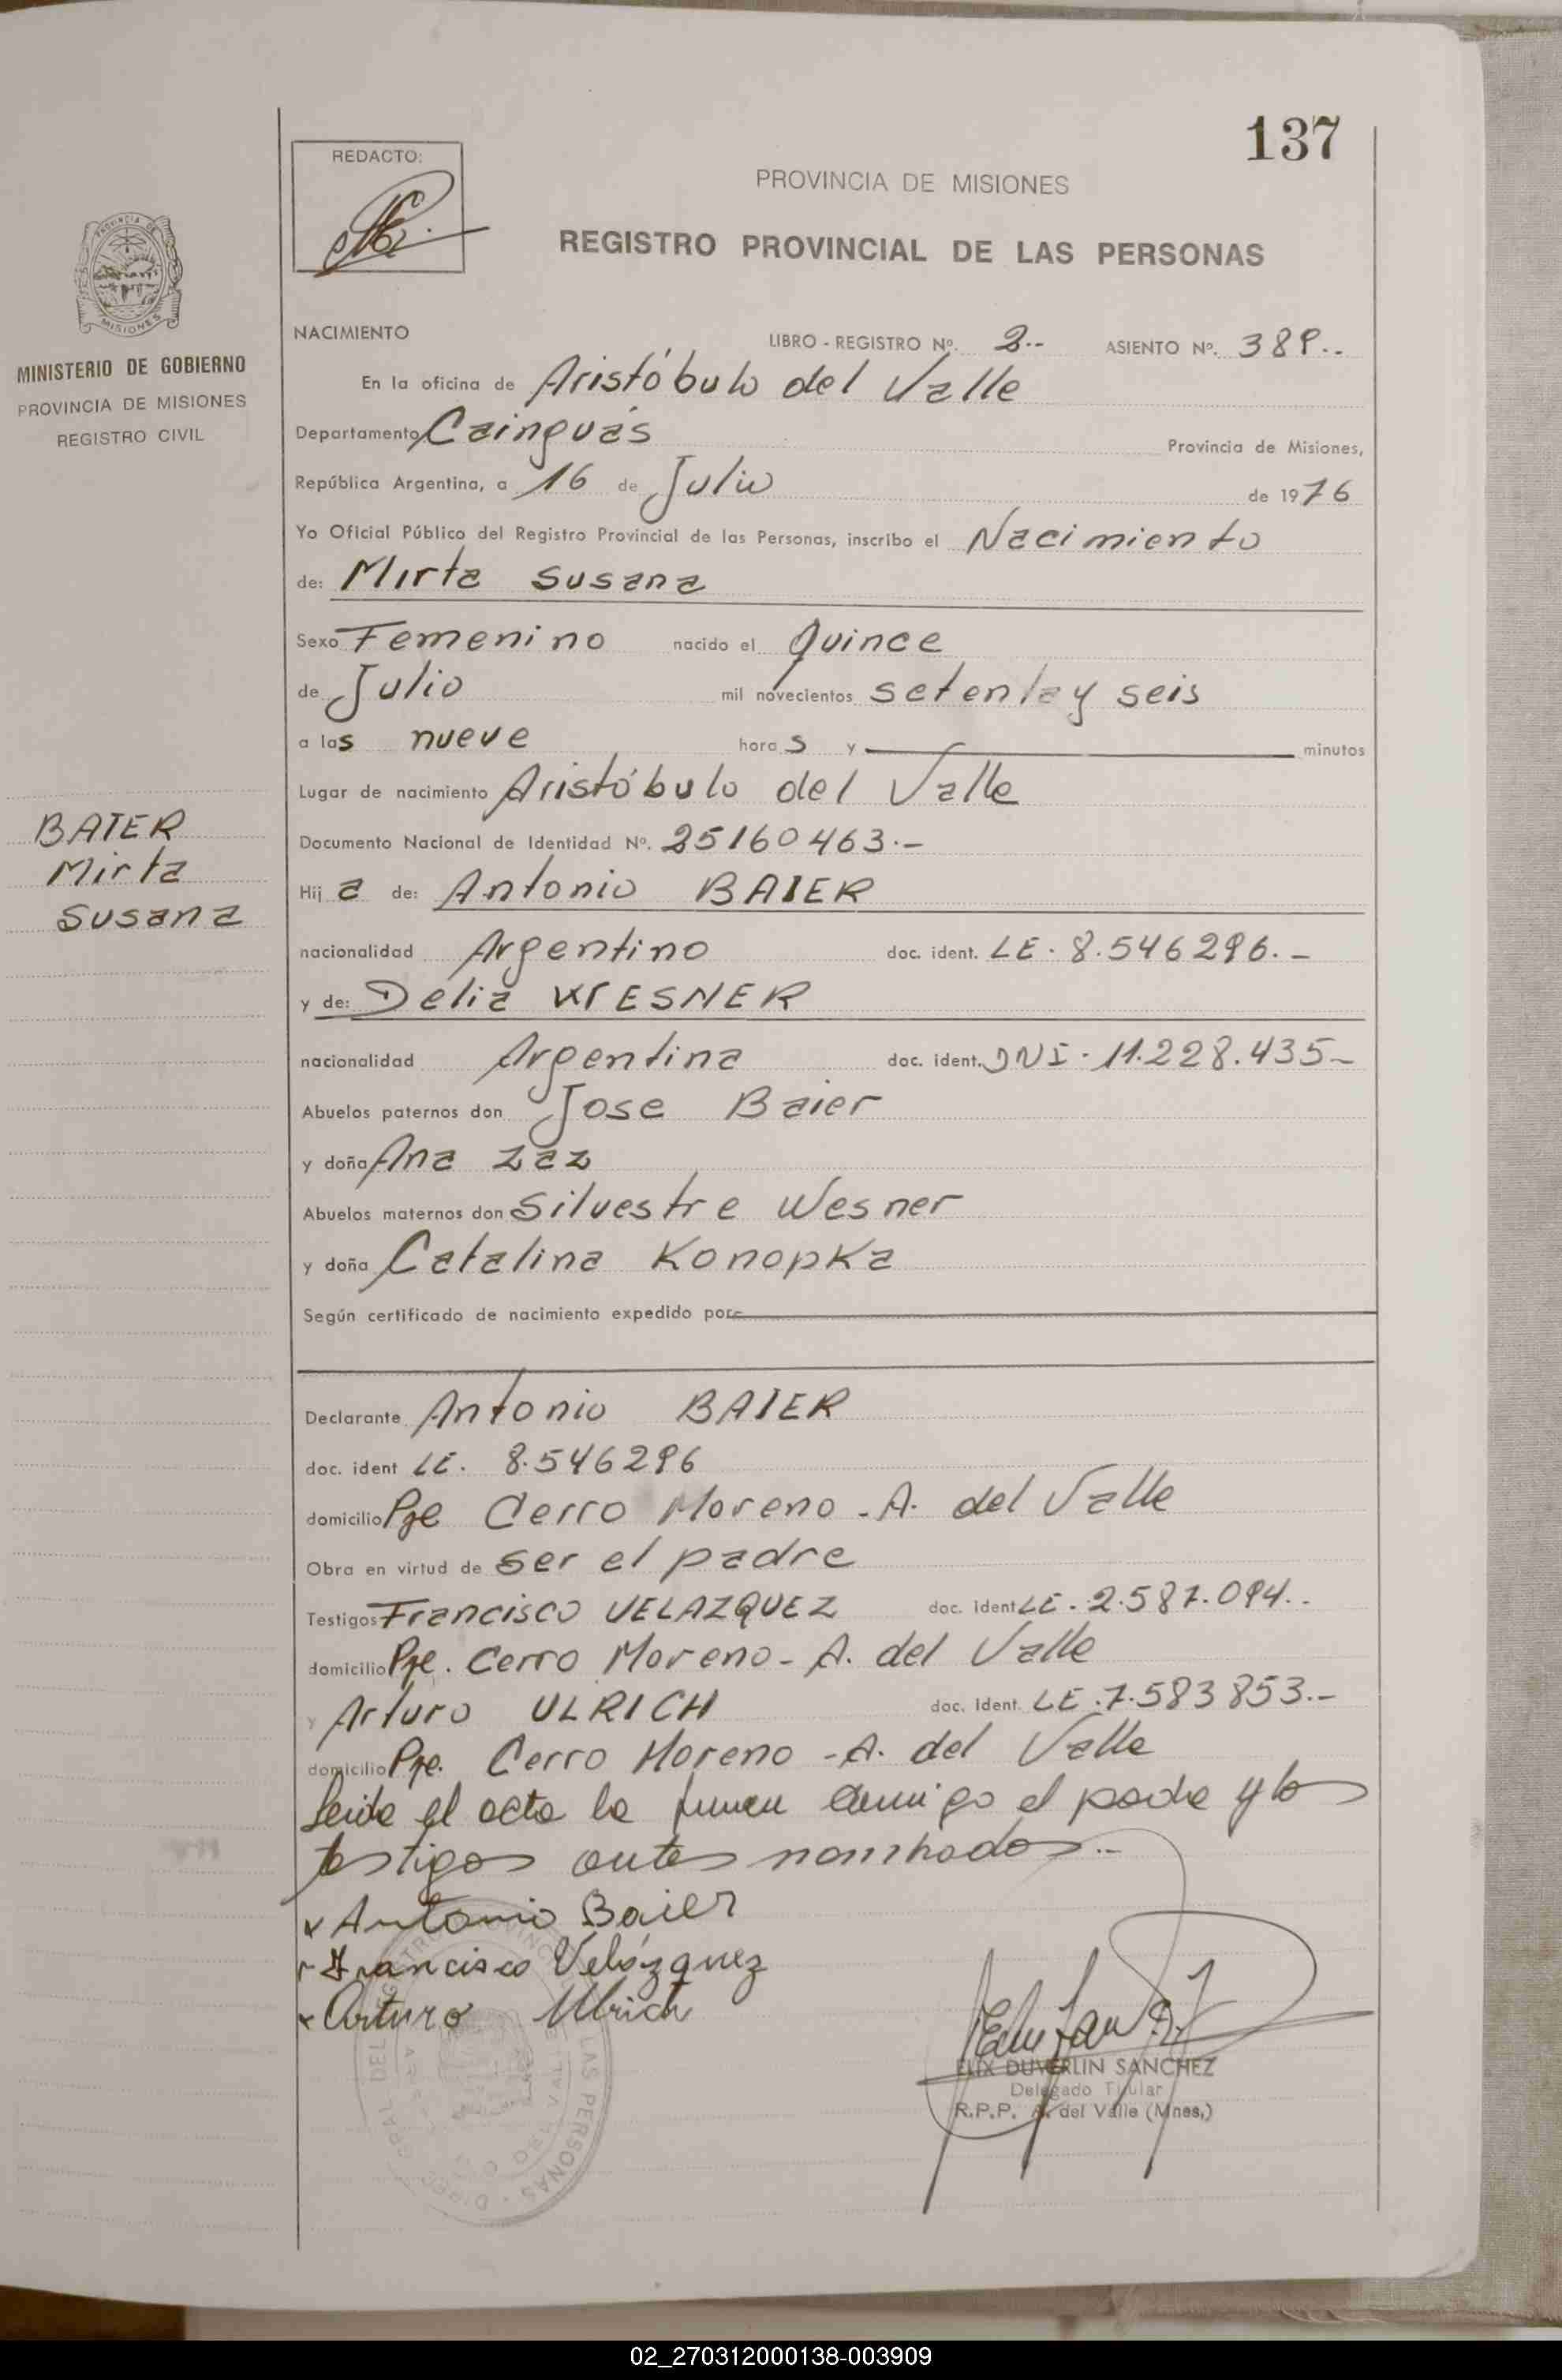 137
REDACTO:
PROVINCIA DE MISIONES
REGISTRO PROVINCIAL DE LAS PERSONAS
PROVINCIA DE
MISIONES
MINISTERIO DE GOBIERNO
PROVINCIA DE MISIONES
REGISTRO CIVIL
BAIER
Mirta
Susana
NACIMIENTO LIBRO - REGISTRO Nº. 2.- ASIENTO Nº. 389..
En la oficina de Aristóbulo del Valle
Departamento Cainguás Provincia de Misiones,
República Argentina, a 16 de Julio de 1976
Yo Oficial Público del Registro Provincial de las Personas, inscribo el Nacimiento
de: Mirta Susana
Sexo Femenino nacido el Quince
de Julio mil novecientos setenta y seis
a las nueve horas y minutos
Lugar de nacimiento Aristóbulo del Valle
Documento Nacional de Identidad Nº. 25160463.-
Hija de: Antonio BAIER
nacionalidad Argentino doc. ident. LE. 8.546296.-
y de: Delia WESNER
nacionalidad Argentina doc. ident. DNI. 11.228.435-
Abuelos paternos don Jose Baier
y doña Ana Zaz
Abuelos maternos don Silvestre Wesner
y doña Catalina Konopka
Según certificado de nacimiento expedido por
Declarante Antonio BAIER
doc. ident LE. 8.546296
domicilio Pje Cerro Moreno - A. del Valle
Obra en virtud de ser el padre
Testigos Francisco VELAZQUEZ doc. ident LE. 2.587.094..
domicilio Pje. Cerro Moreno - A. del Valle
y Arturo ULRICH doc. ident. LE. 7.583853.-
domicilio Pje. Cerro Moreno - A. del Valle
Leida el acta la firman conmigo el padre y los
testigos antes nombrados.-
Antonio Baier
Francisco Velázquez
Arturo Ulrich
DUVERLIN SANCHEZ
Delegado Titular
R.P.P. A. del Valle (Mnes.)
LAS PERSONAS
02_270312000138-003909